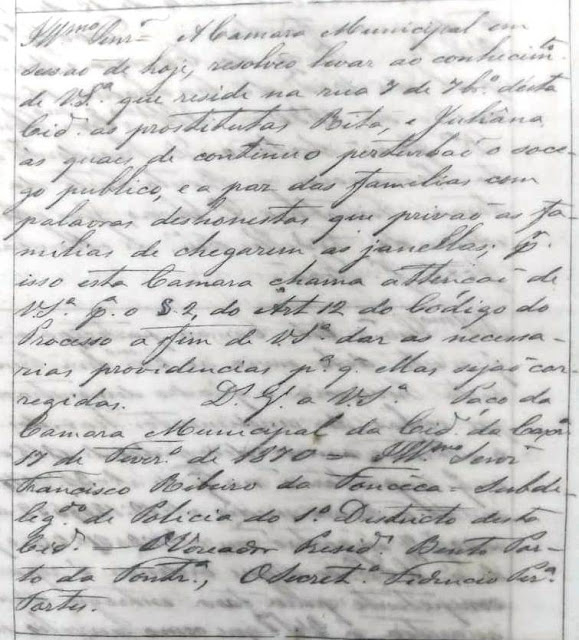 Illmo. Senr.= A Camara Municipal em
sessaõ de hoje, resolveo levar ao conhecimto.
de V.Sa. que reside na rua 7 de 7bro. desta
Cide. as prostitutas Rita, e Juliana
as quaes de continuo perturbaõ o soce-
go publico, e a paz das familias com
palavras deshonestas que privaõ as fa-
milias de chegarem as janellas; pr.
isso esta Camara chama attençaõ de
V.Sa. pa. o § 2, do Art 12 do Codigo do
Processo a fim de V.Sa. dar as necessa-
rias providencias pa. q. ellas sejaõ cor-
regidas. Ds. Ge. a V.Sa. Paço da
Camara Municipal da Cide. da
17 de Fevero. de 1870 = Illmo. Senr
Francisco Ribeiro da Fonceca = Subde-
legdo. de Policia do 1o. Districto desta
Cide. — O Vereador Preside. Bento Por-
to da Fontra., O Secreto. Fidencio Pera.
Fortes.